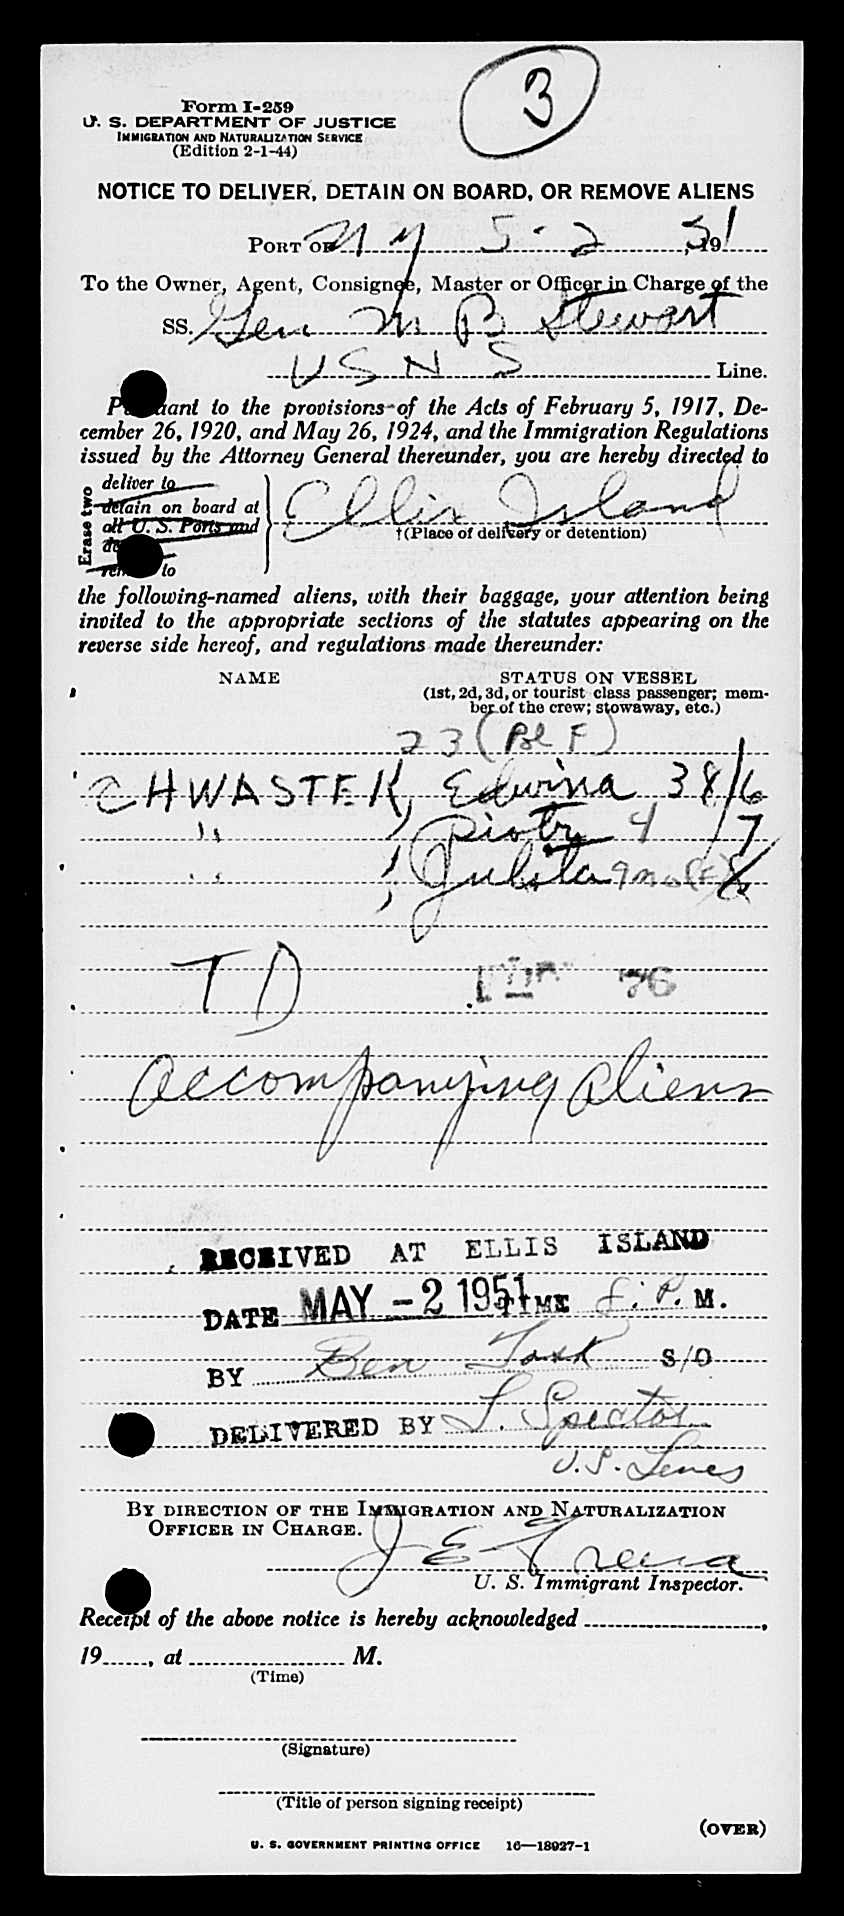 3
Form I-259
U. S. DEPARTMENT OF JUSTICE
IMMIGRATION AND NATURALIZATION SERVICE
(Edition 2-1-44)
NOTICE TO DELIVER, DETAIN ON BOARD, OR REMOVE ALIENS
PORT OF NY 5-2, 1951
To the Owner, Agent, Consignee, Master or Officer in Charge of the
SS. Gen M B Stewart
USNS Line.
Pursuant to the provisions of the Acts of February 5, 1917, De-
cember 26, 1920, and May 26, 1924, and the Immigration Regulations
issued by the Attorney General thereunder, you are hereby directed to
Erase two
deliver to
detain on board at
all U. S. Ports and
to
Ellis Island
†(Place of delivery or detention)
the following-named aliens, with their baggage, your attention being
invited to the appropriate sections of the statutes appearing on the
reverse side hereof, and regulations made thereunder:
NAME STATUS ON VESSEL
(1st, 2d, 3d, or tourist class passenger; mem-
ber of the crew; stowaway, etc.)
23 (Pol F)
CHWASTEK, Edwina 38/6
" , Piotr 4 /7
" , Julita 9 mos (F) 8
TD
accompanying aliens
RECEIVED AT ELLIS ISLAND
DATE MAY -2 1951 TIME P. M.
BY Ben S/O
DELIVERED BY L. Spector
U.S. Lines
BY DIRECTION OF THE IMMIGRATION AND NATURALIZATION
OFFICER IN CHARGE.
J E
U. S. Immigrant Inspector.
Receipt of the above notice is hereby acknowledged ,
19 , at M.
(Time)
(Signature)
(Title of person signing receipt)
(OVER)
U. S. GOVERNMENT PRINTING OFFICE 16—18927-1